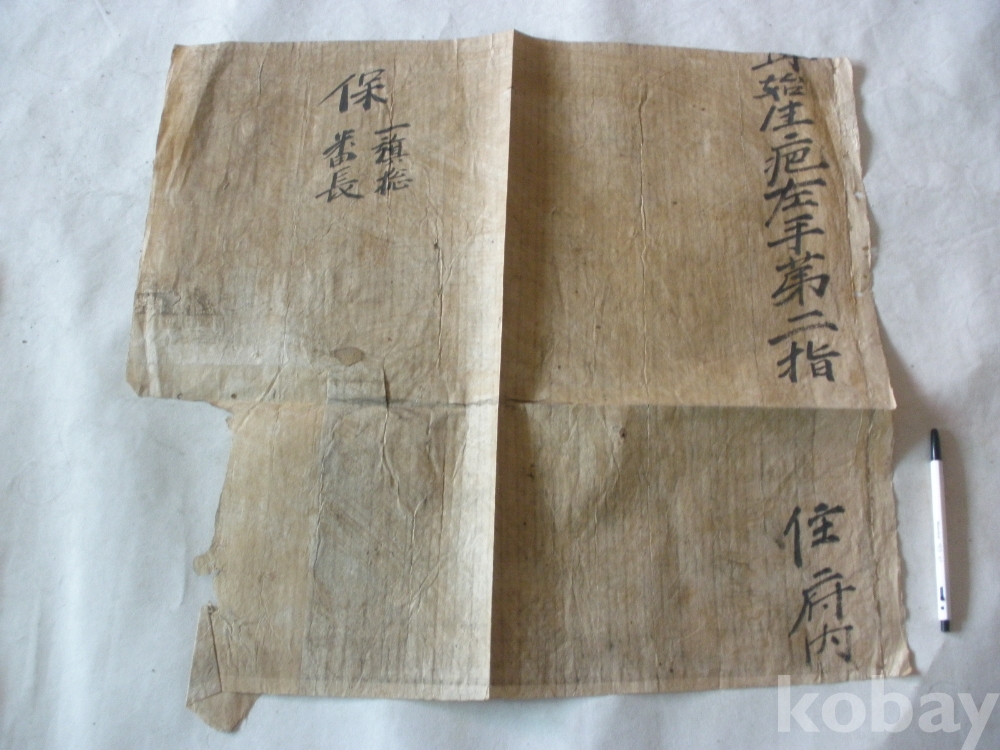 始生疤左手第二指
住府内
保
一旗総
番長
kobay